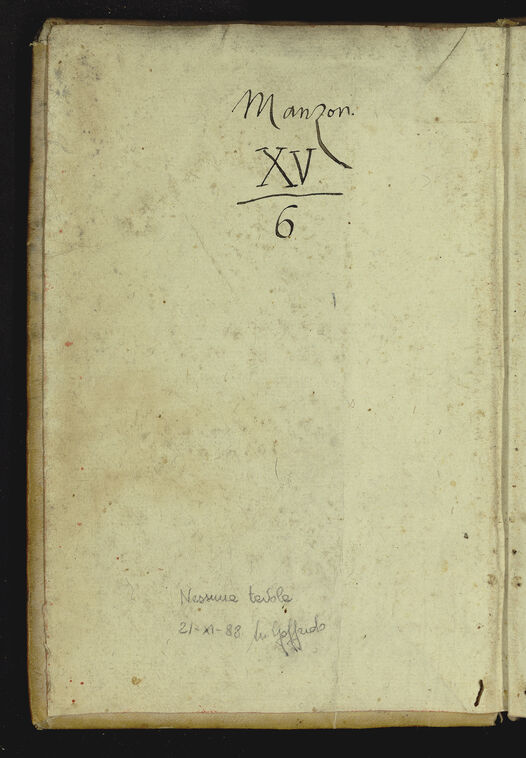 Manzon.
XV
6
Nessuna tavola
21-XI-88